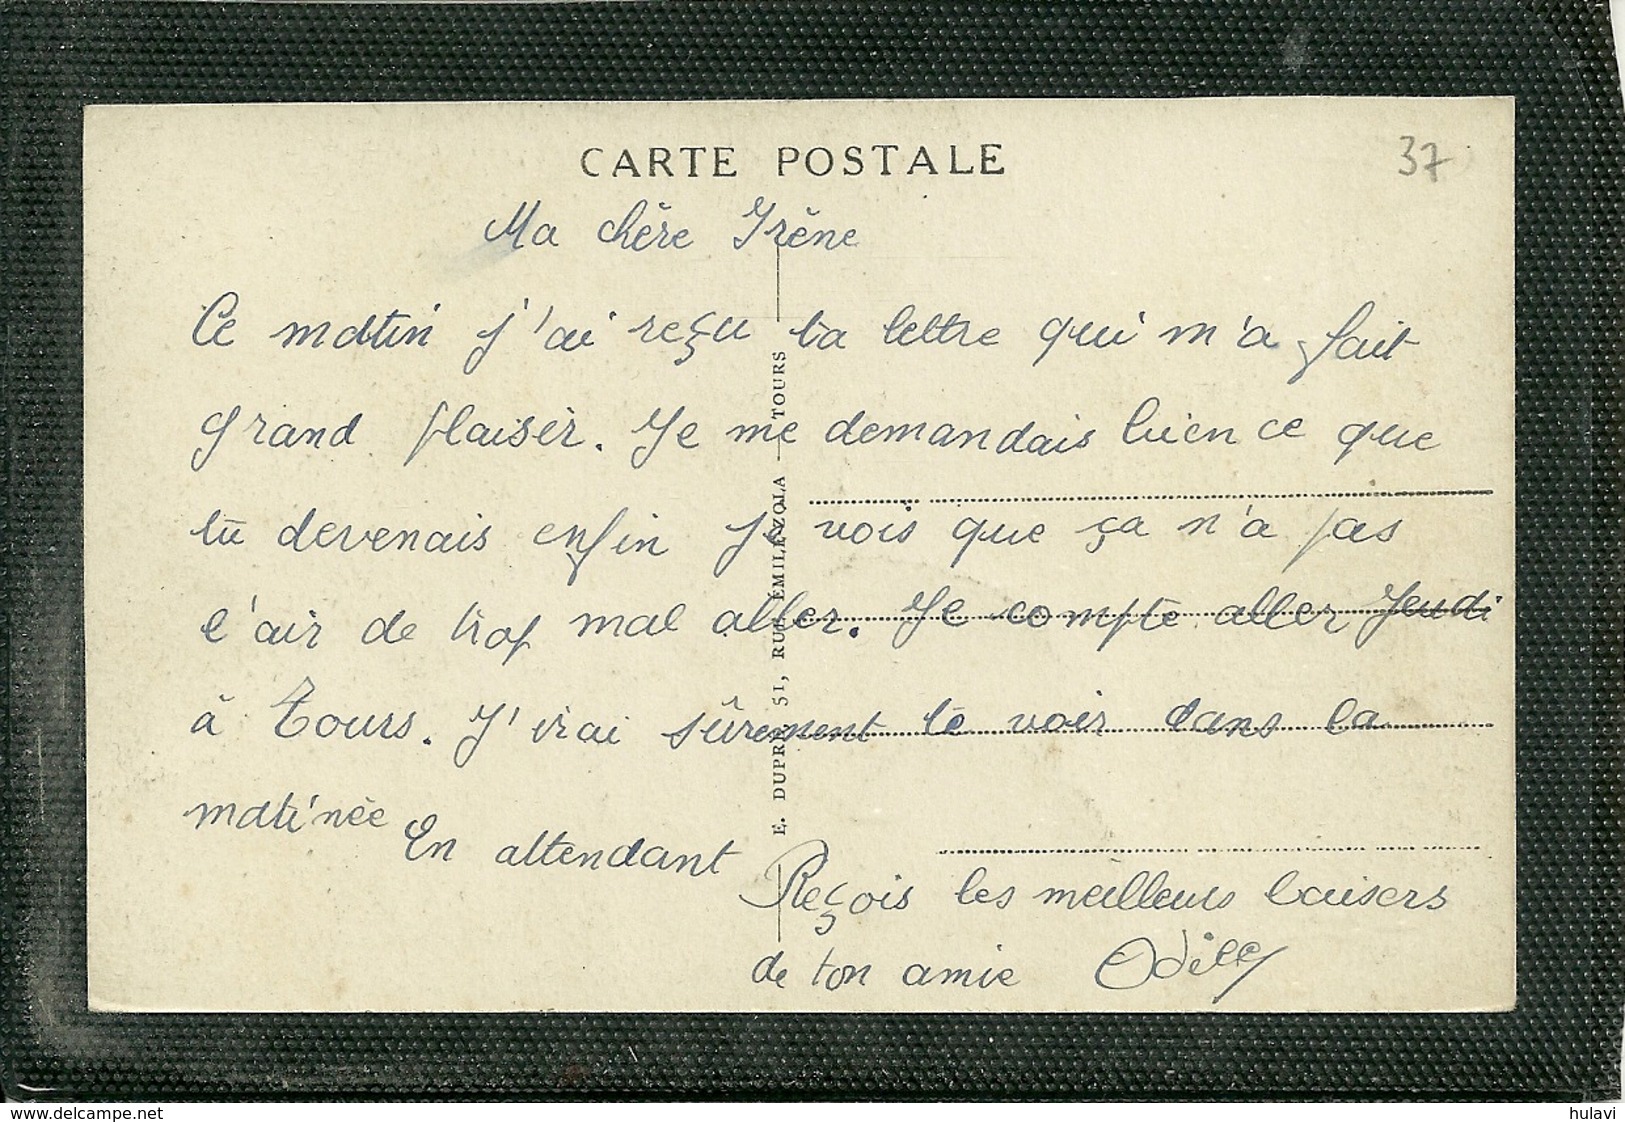 CARTE POSTALE
37
Ma chère Irène
Ce matin j'ai reçu ta lettre qui m'a fait
grand plaisir. Je me demandais bien ce que
tu devenais enfin Je vois que ça n'a pas
l'air de trop mal aller. Je compte aller Jeudi
à Tours. J'irai sûrement te voir dans la
matinée
En attendant
Reçois les meilleurs baisers
de ton amie Odile
E. DUPRÉ 51, RUE ÉMILE ZOLA — TOURS
www.delcampe.net
hulavi